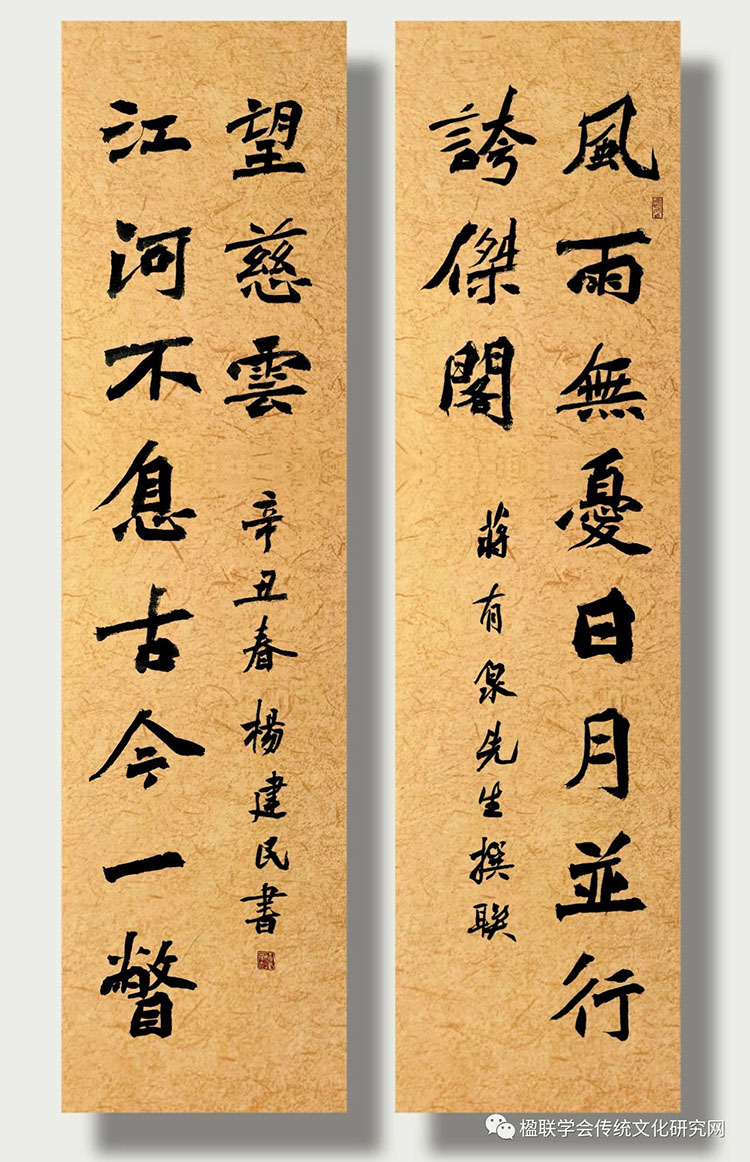 風雨無憂日月並行
誇傑閣
蔣有泉先生撰聯
江河不息古今一瞥
望慈雲
辛丑春楊建民書
楹联学会传统文化研究网